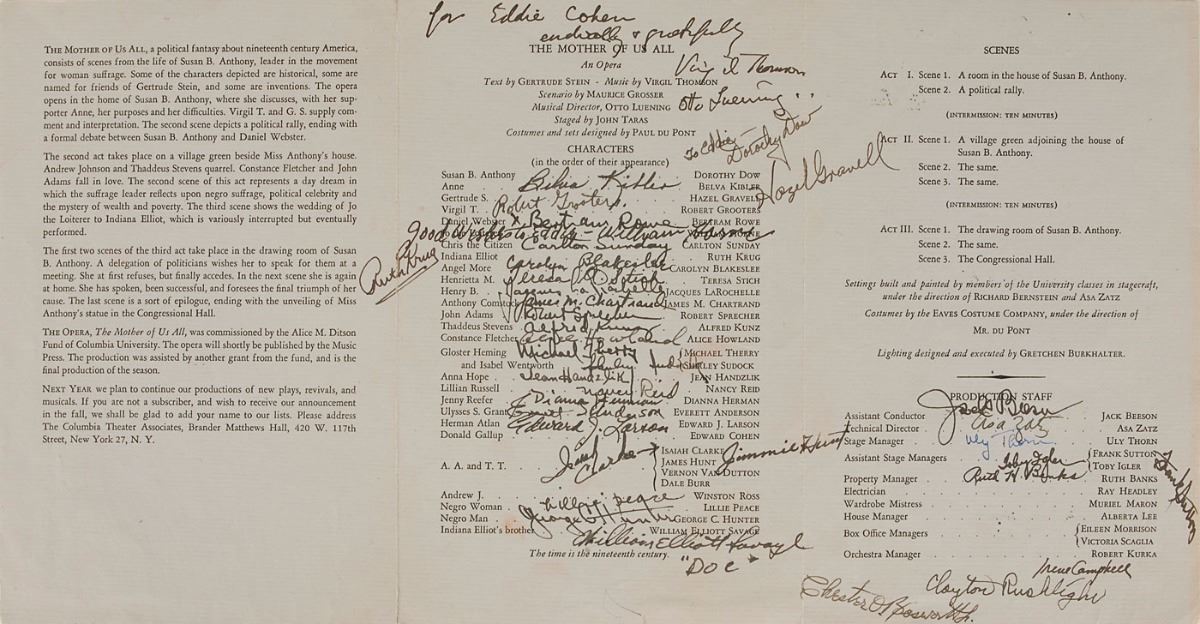 THE MOTHER OF US ALL, a political fantasy about nineteenth century America,
consists of scenes from the life of Susan B. Anthony, leader in the movement
for woman suffrage. Some of the characters depicted are historical, some are
named for friends of Gertrude Stein, and some are inventions. The opera
opens in the home of Susan B. Anthony, where she discusses, with her sup-
porter Anne, her purposes and her difficulties. Virgil T. and G. S. supply com-
ment and interpretation. The second scene depicts a political rally, ending with
a formal debate between Susan B. Anthony and Daniel Webster.
The second act takes place on a village green beside Miss Anthony's house.
Andrew Johnson and Thaddeus Stevens quarrel. Constance Fletcher and John
Adams fall in love. The second scene of this act represents a day dream in
which the suffrage leader reflects upon negro suffrage, political celebrity and
the mystery of wealth and poverty. The third scene shows the wedding of Jo
the Loiterer to Indiana Elliot, which is variously interrupted but eventually
performed.
The first two scenes of the third act take place in the drawing room of Susan
B. Anthony. A delegation of politicians wishes her to speak for them at a
meeting. She at first refuses, but finally accedes. In the next scene she is again
at home. She has spoken, been successful, and foresees the final triumph of her
cause. The last scene is a sort of epilogue, ending with the unveiling of Miss
Anthony's statue in the Congressional Hall.
THE OPERA, The Mother of Us All, was commissioned by the Alice M. Ditson
Fund of Columbia University. The opera will shortly be published by the Music
Press. The production was assisted by another grant from the fund, and is the
final production of the season.
NEXT YEAR we plan to continue our productions of new plays, revivals, and
musicals. If you are not a subscriber, and wish to receive our announcement
in the fall, we shall be glad to add your name to our lists. Please address
The Columbia Theater Associates, Brander Matthews Hall, 420 W. 117th
Street, New York 27, N. Y.
for Eddie Cohen
cordially & gratefully
THE MOTHER OF US ALL
An Opera
Virgil Thomson
Text by GERTRUDE STEIN - Music by VIRGIL THOMSON
Scenario by MAURICE GROSSER
Musical Director, OTTO LUENING
Otto Luening
Staged by JOHN TARAS
Costumes and sets designed by PAUL DU PONT
To Eddie
Dorothy Dow
Hazel Gravell
CHARACTERS
(in the order of their appearance)
Susan B. Anthony DOROTHY DOW
Anne BELVA KIBLER
Belva Kibler
Gertrude S. HAZEL GRAVELL
Virgil T. ROBERT GROOTERS
Robert Grooters
Daniel Webster BERTRAM ROWE
Bertram Rowe
Good wishes to Eddie - William Horne
Chris the Citizen CARLTON SUNDAY
Carlton Sunday
Indiana Elliot RUTH KRUG
Ruth Krug
Angel More CAROLYN BLAKESLEE
Carolyn Blakeslee
Henrietta M. TERESA STICH
Teresa Stich
Henry B. JACQUES LAROCHELLE
Anthony Comstock JAMES M. CHARTRAND
James M. Chartrand
John Adams ROBERT SPRECHER
Robert Sprecher
Thaddeus Stevens ALFRED KUNZ
Alfred Kunz
Constance Fletcher ALICE HOWLAND
Alice Howland
Gloster Heming MICHAEL THERRY
Michael Therry
and Isabel Wentworth SHIRLEY SUDOCK
Shirley Sudock
Anna Hope JEAN HANDZLIK
Jean Handzlik
Lillian Russell NANCY REID
Nancy Reid
Jenny Reefer DIANNA HERMAN
Dianna Herman
Ulysses S. Grant EVERETT ANDERSON
Everett Anderson
Herman Atlan EDWARD J. LARSON
Edward J. Larson
Donald Gallup EDWARD COHEN
A. A. and T. T. ISAIAH CLARKE
JAMES HUNT
VERNON VAN DUTTON
DALE BURR
Isaiah Clarke
Jimmie Hunt
Andrew J. WINSTON ROSS
Negro Woman LILLIE PEACE
Lillie Peace
Negro Man GEORGE C. HUNTER
George C. Hunter
Indiana Elliot's brother WILLIAM ELLIOTT SAVAGE
William Elliott Savage
"DOC"
The time is the nineteenth century.
SCENES
ACT I. Scene 1. A room in the house of Susan B. Anthony.
Scene 2. A political rally.
(INTERMISSION: TEN MINUTES)
ACT II. Scene 1. A village green adjoining the house of
Susan B. Anthony.
Scene 2. The same.
Scene 3. The same.
(INTERMISSION: TEN MINUTES)
ACT III. Scene 1. The drawing room of Susan B. Anthony.
Scene 2. The same.
Scene 3. The Congressional Hall.
Settings built and painted by members of the University classes in stagecraft,
under the direction of RICHARD BERNSTEIN and ASA ZATZ
Costumes by the EAVES COSTUME COMPANY, under the direction of
MR. DU PONT
Lighting designed and executed by GRETCHEN BURKHALTER.
PRODUCTION STAFF
Assistant Conductor JACK BEESON
Jack Beeson
Technical Director ASA ZATZ
Asa Zatz
Stage Manager ULY THORN
Uly Thorn
Assistant Stage Managers FRANK SUTTON
TOBY IGLER
Toby Igler
Frank Sutton
Property Manager RUTH BANKS
Ruth H. Banks
Electrician RAY HEADLEY
Wardrobe Mistress MURIEL MARON
House Manager ALBERTA LEE
Box Office Managers EILEEN MORRISON
VICTORIA SCAGLIA
Orchestra Manager ROBERT KURKA
Irene Campbell
Clayton Rushlight